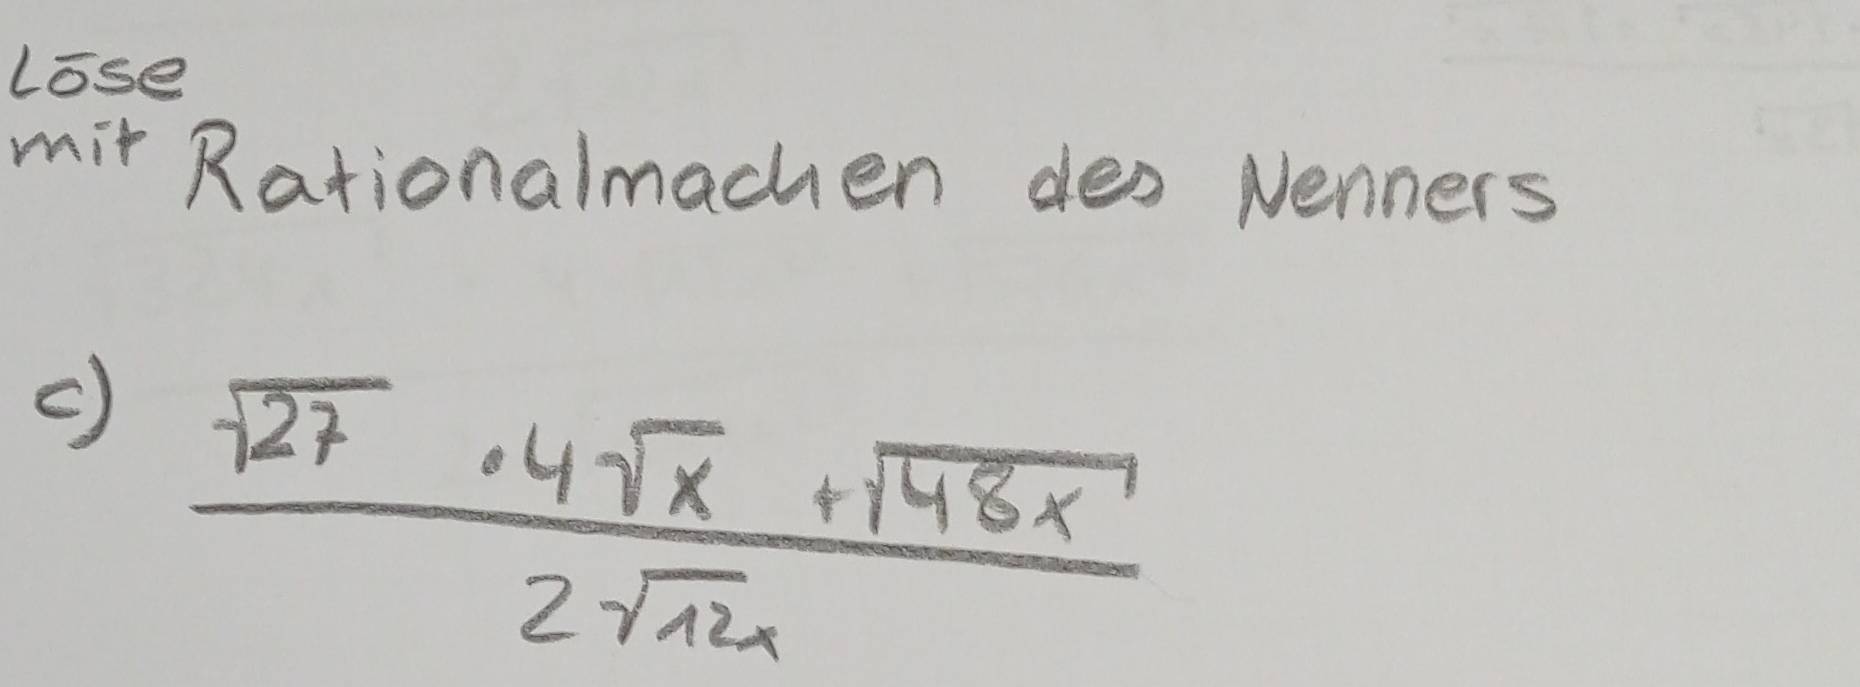 Löse
mit Rationalmachen des Nenners
c) √27 · 4√x + √48x
2√12x